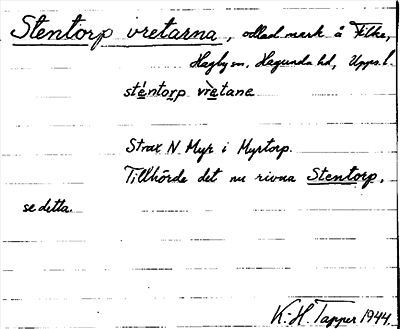 Stentorp vretarna, odlad mark å Filke,
Hagby sn, Hagunda hd, Upps. l.
sténtorp vrètane
Strax N Myr i Myrtorp.
Tillhörde det nu rivna Stentorp,
se detta.
K.-H. Tapper 1944.